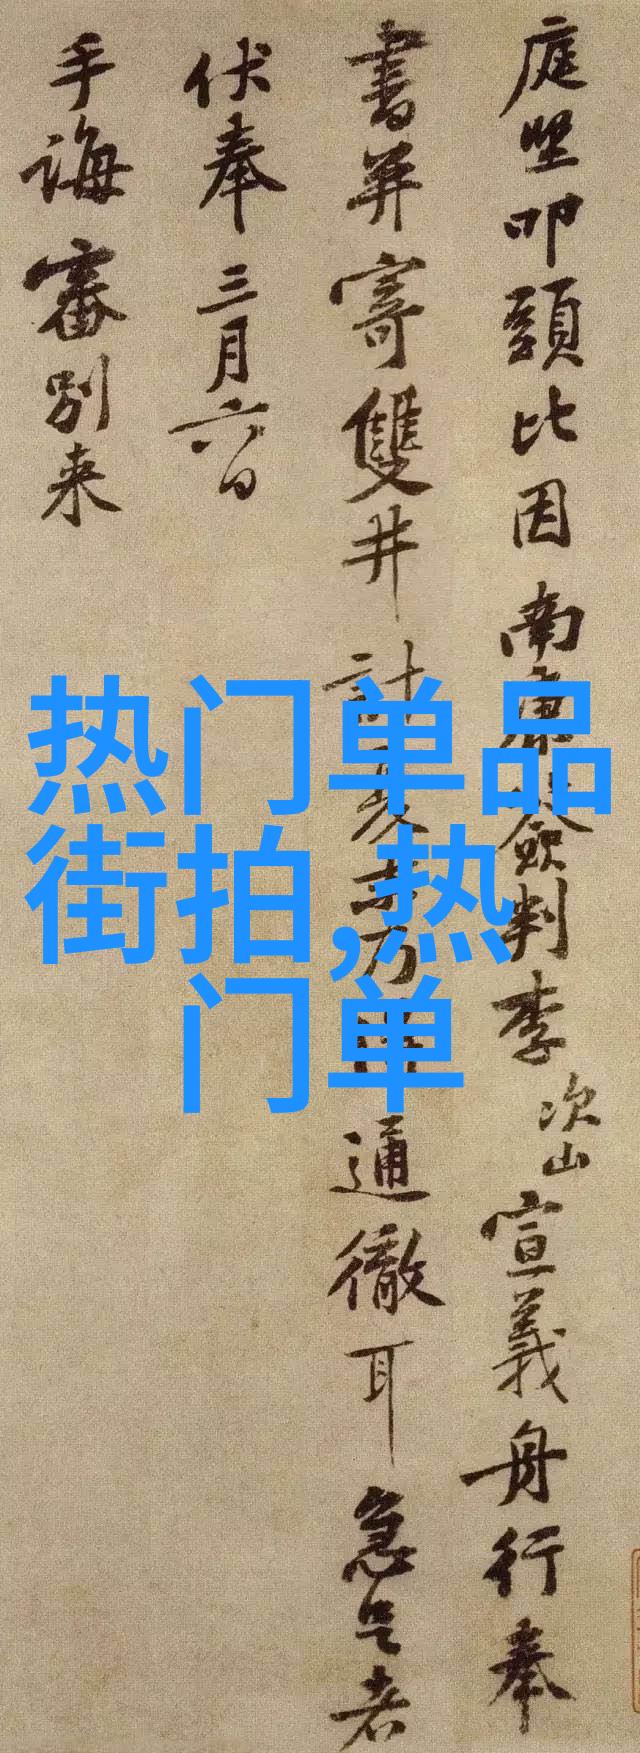 庭堅叩頭比因南康簽判李次山宣義舟行奉
書并寄雙井計
通徹耳急足者
伏奉三月六日
手誨審別来
热门单品
街拍,热
门单